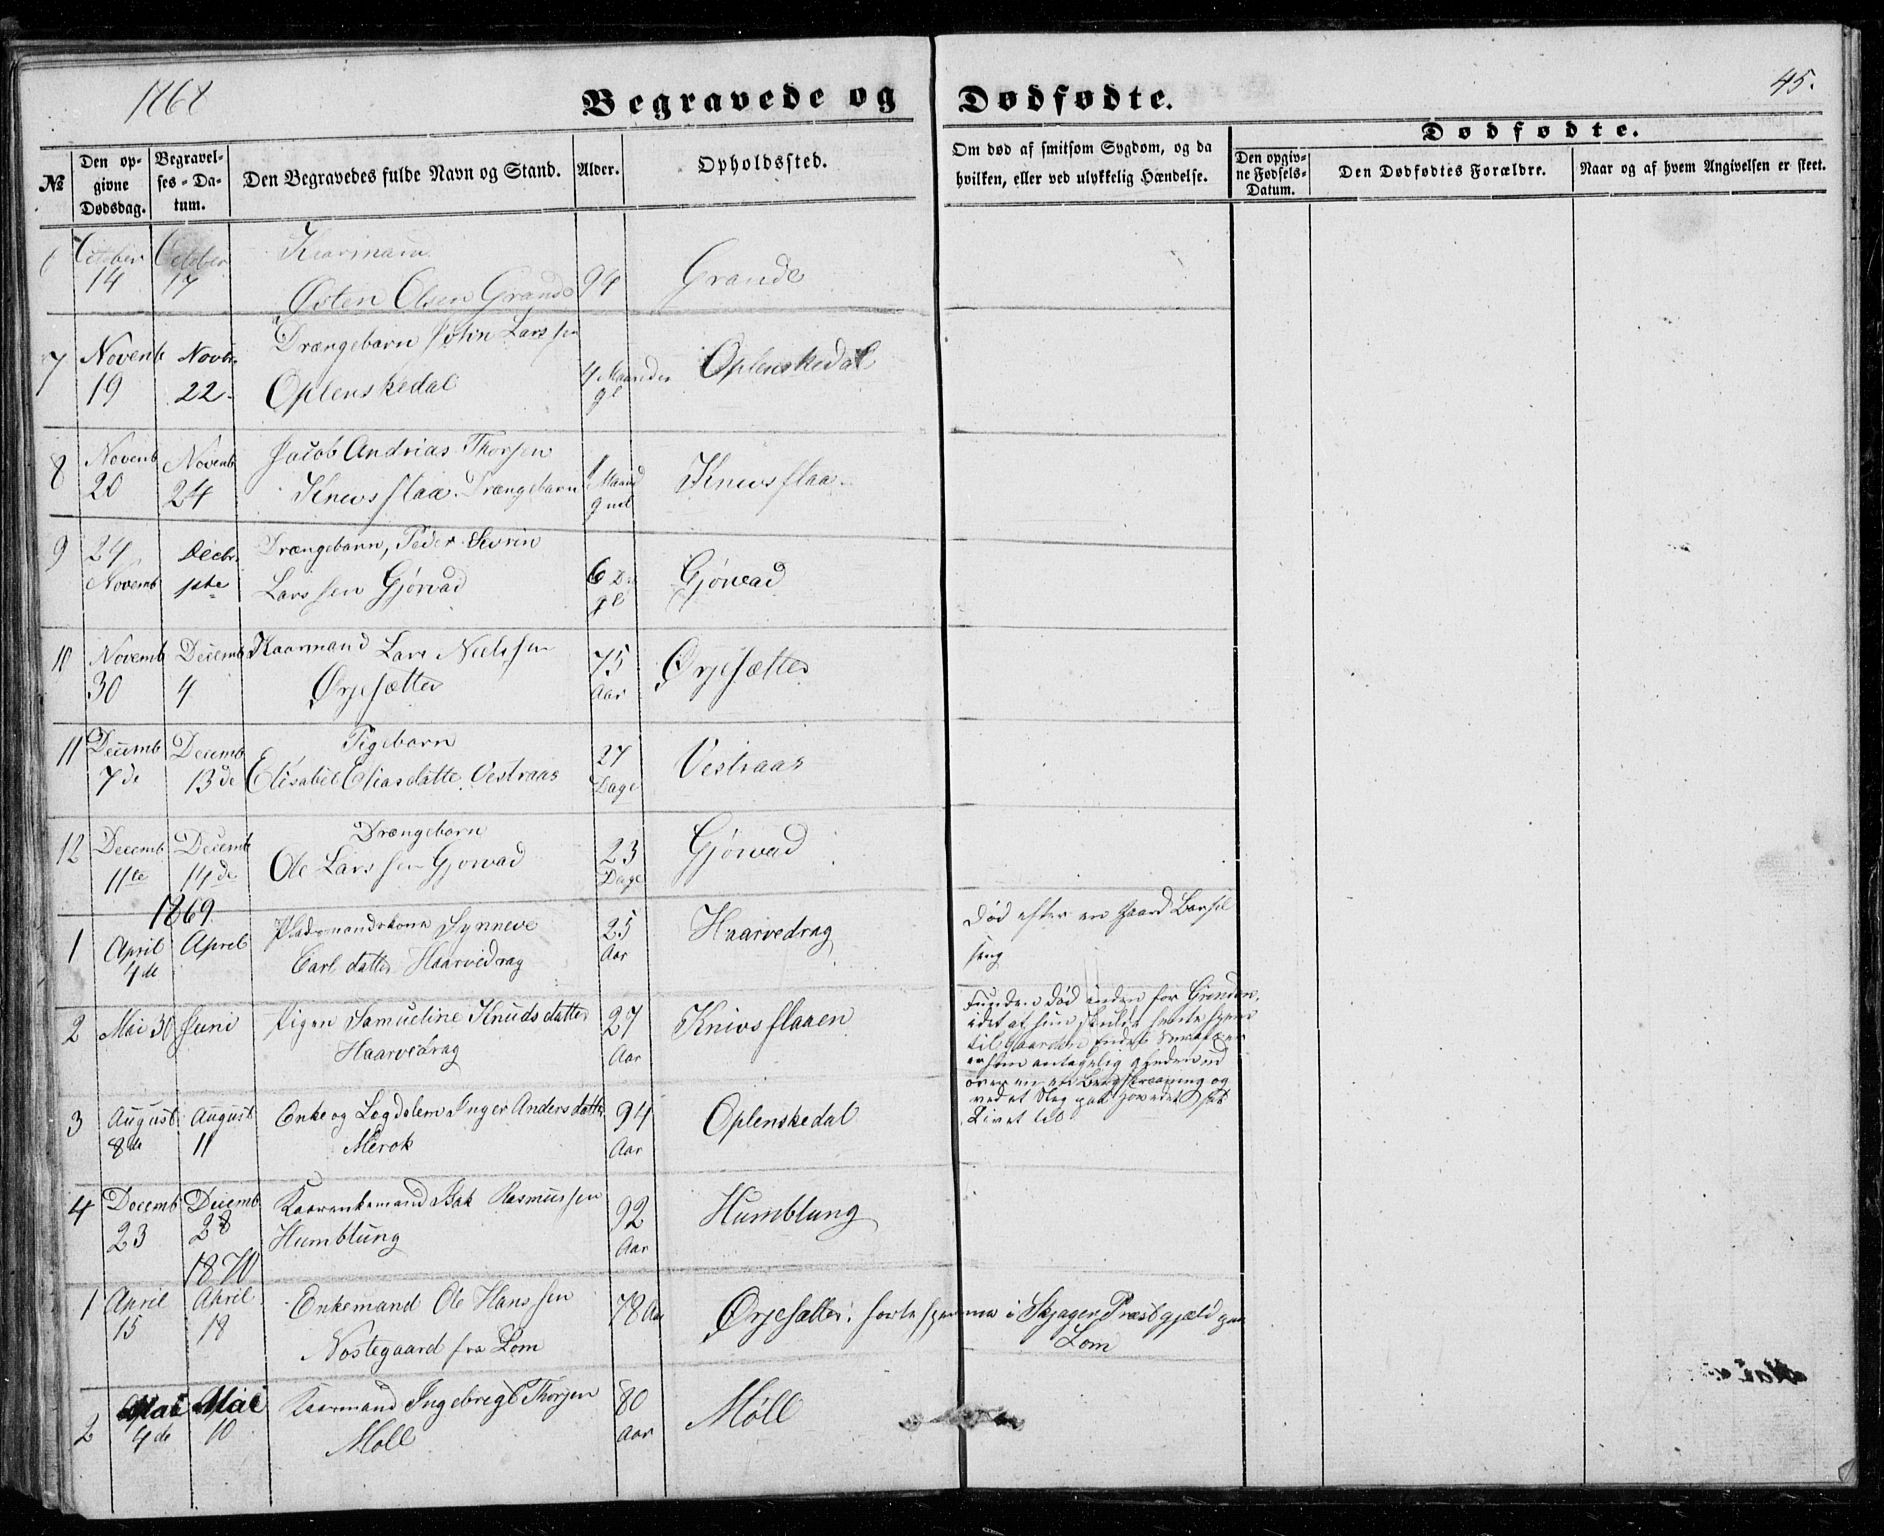 1868
Begravede og Dødfødte.
45.
№
Den opgivne Dødsdag.
Begravelses-Datum.
Den Begravedes fulde Navn og Stand.
Alder.
Opholdssted.
Om død af smitsom Sygdom, og da hvilken, eller ved ulykkelig Hændelse.
Dødfødte.
Den opgivne Fødsels-Datum.
Den Dødfødtes Forældre.
Naar og af hvem Angivelsen er skeet.
6 October 14 October 17 Kaarmand
Østen Olsen Grande 94 Grande
7 Novemb 19 Novbr. 22 Drængebarn John Larssen
Oplenskedal 4 Maaneder gl Oplenskedal
8 Novemb 20 Novemb 24 Jacob Andrias Thorsen
Knivsflaa Drængebarn 1 Maaned gml Knivsflaa
9 24 Novemb Decbr. 1ste Drængebarn, Peder Sevrin
Larssen Gjørvad 6 D. gl Gjørvad
10 Novemb 30 Decemb 4 Kaarmand Lars Nielssen
Ørjesætter 75 Aar Ørjesætter
11 Decemb 7de Decemb 13de Pigebarn
Elisabet Eliasdatte. Vestraas 27 Dage Vestraas
12 Decemb 11te Decemb 14de Drængebarn
Ole Larssen Gjørvad 23 Dage Gjørvad
1869.
1 April 4de April Pladsmandskone Synneve
Carl datter Haarvedrag 25 Aar Haarvedrag
Død efter en haard Barsel
seng
2 Mai 30 Juni Pigen Samueline Knudsdatter
Haarvedrag 27 Aar Knivsflaaen
Funden død inden for
idet at hun skulde
til Gaarden
er hun antagelig gleden ud
over en Bergskraaning og
ved et Slag paa Hovedet sat
Livet til
3 August 8de August 11 Enke og Legdslem Inger Andersdatter
Merok 94 Aar Oplenskedal
4 Decemb 23 Decemb 28 Kaarenkemand Isak Rasmussen
Humblung 92 Aar Humblung
1870
1 April 15 April 18 Enkemand Ole Hanssen
Nostegaard fra Lom 78 Aar Ørjesætter: forte hjemme i Skjager Præstgjæld
Lom
2 Mai 4de Mai 10 Kaarmand Ingebrigt Thorsen
Moll 80 Aar Møll